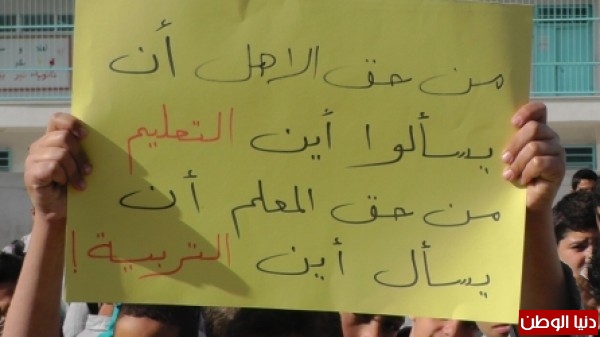 من حق الاهل أن
يسألوا أين التعليم
من حق المعلم أن
يسأل أين التربية !
دنيا الوطن